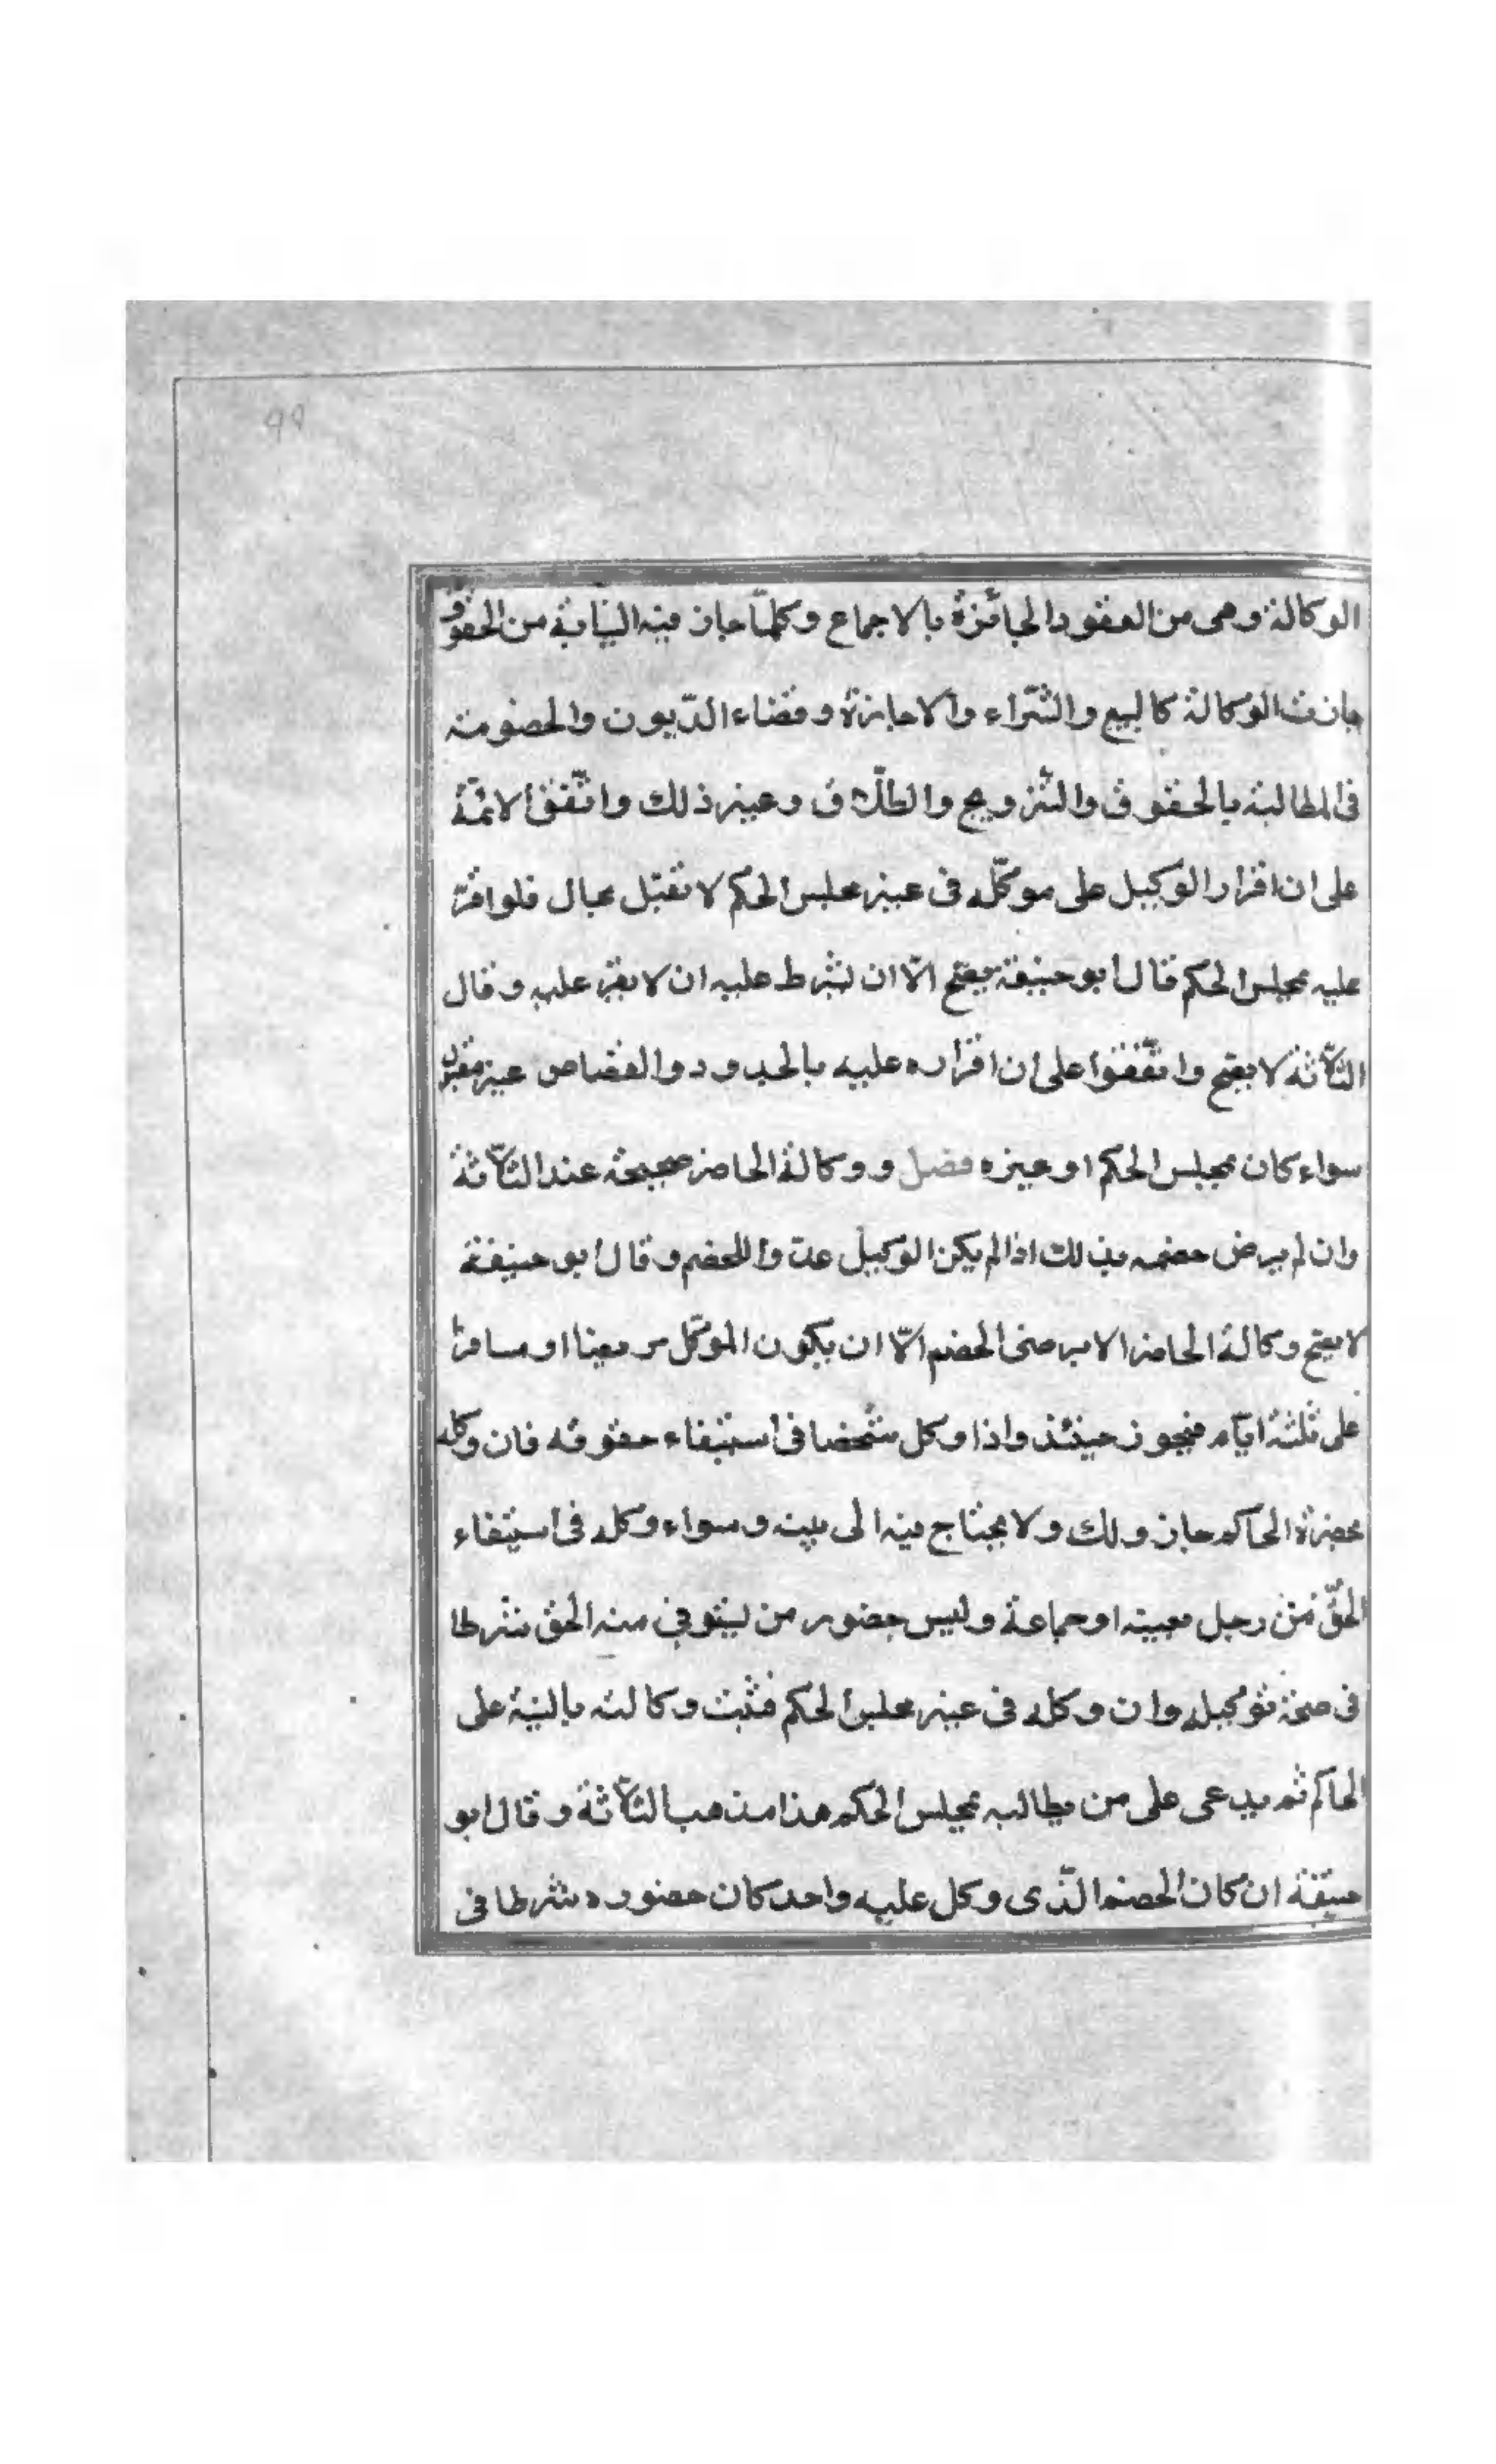 ٩٩
الوكالة وهى من العقود الجائزة بالاجماع وكلمّا جاز فيه النيابة من الحقوق
جازت الوكالة كالبيع والشّراء والاجازة وقضاء الدّيون والخصومة
فى المطالبة بالحقوق والتّزويج والطلّاق وغير ذلك واتّفق الائمّة
على ان اقرار الوكيل على موكّله فى غير مجلس الحكم لا تقبل بحال فلو اقرّ
عليه بمجلس الحكم قال ابو حنيفة يصّح الّا ان يشرط عليه ان لا يقرّ عليه وقال
الثّلاثة لا يصّح واتّفقوا على ان اقراره عليه بالحدود والقصاص غير مقبول
سواء كان بمجلس الحكم او غيره فصل ووكالة الحاضر صحيحة عند الثّلاثة
وان لم يرض خصمه بذلك اذا لم يكن الوكيل عدوا للخصم وقال ابو حنيفة
لا يصّح وكالة الحاضر الا برضى الخصم الّا ان يكون الموكّل مريضا او مسافرا
على ثلثة ايّام فيجوز حينئذ واذا وكل شخصا فى استيفاء حقوقه فان وكله
بحضرة الحاكم جاز ولك ولا يحتاج فيه الى بينة وسواء وكله فى استيفاء
الحقّ من رجل معينه او جماعة وليس حضور من يستوفى منه الحق شرطا
فى صحّة توكيله وان وكله فى غير مجلس الحكم فتثبت وكالته بالبنية على
الحاكم ثم يدعى على من يطالبه بمجلس الحكم هذا مذهب الثّلاثة وقال ابو
حنيفة ان كان الخصم الّذى وكل عليه واحد كان حضوره شرطا فى